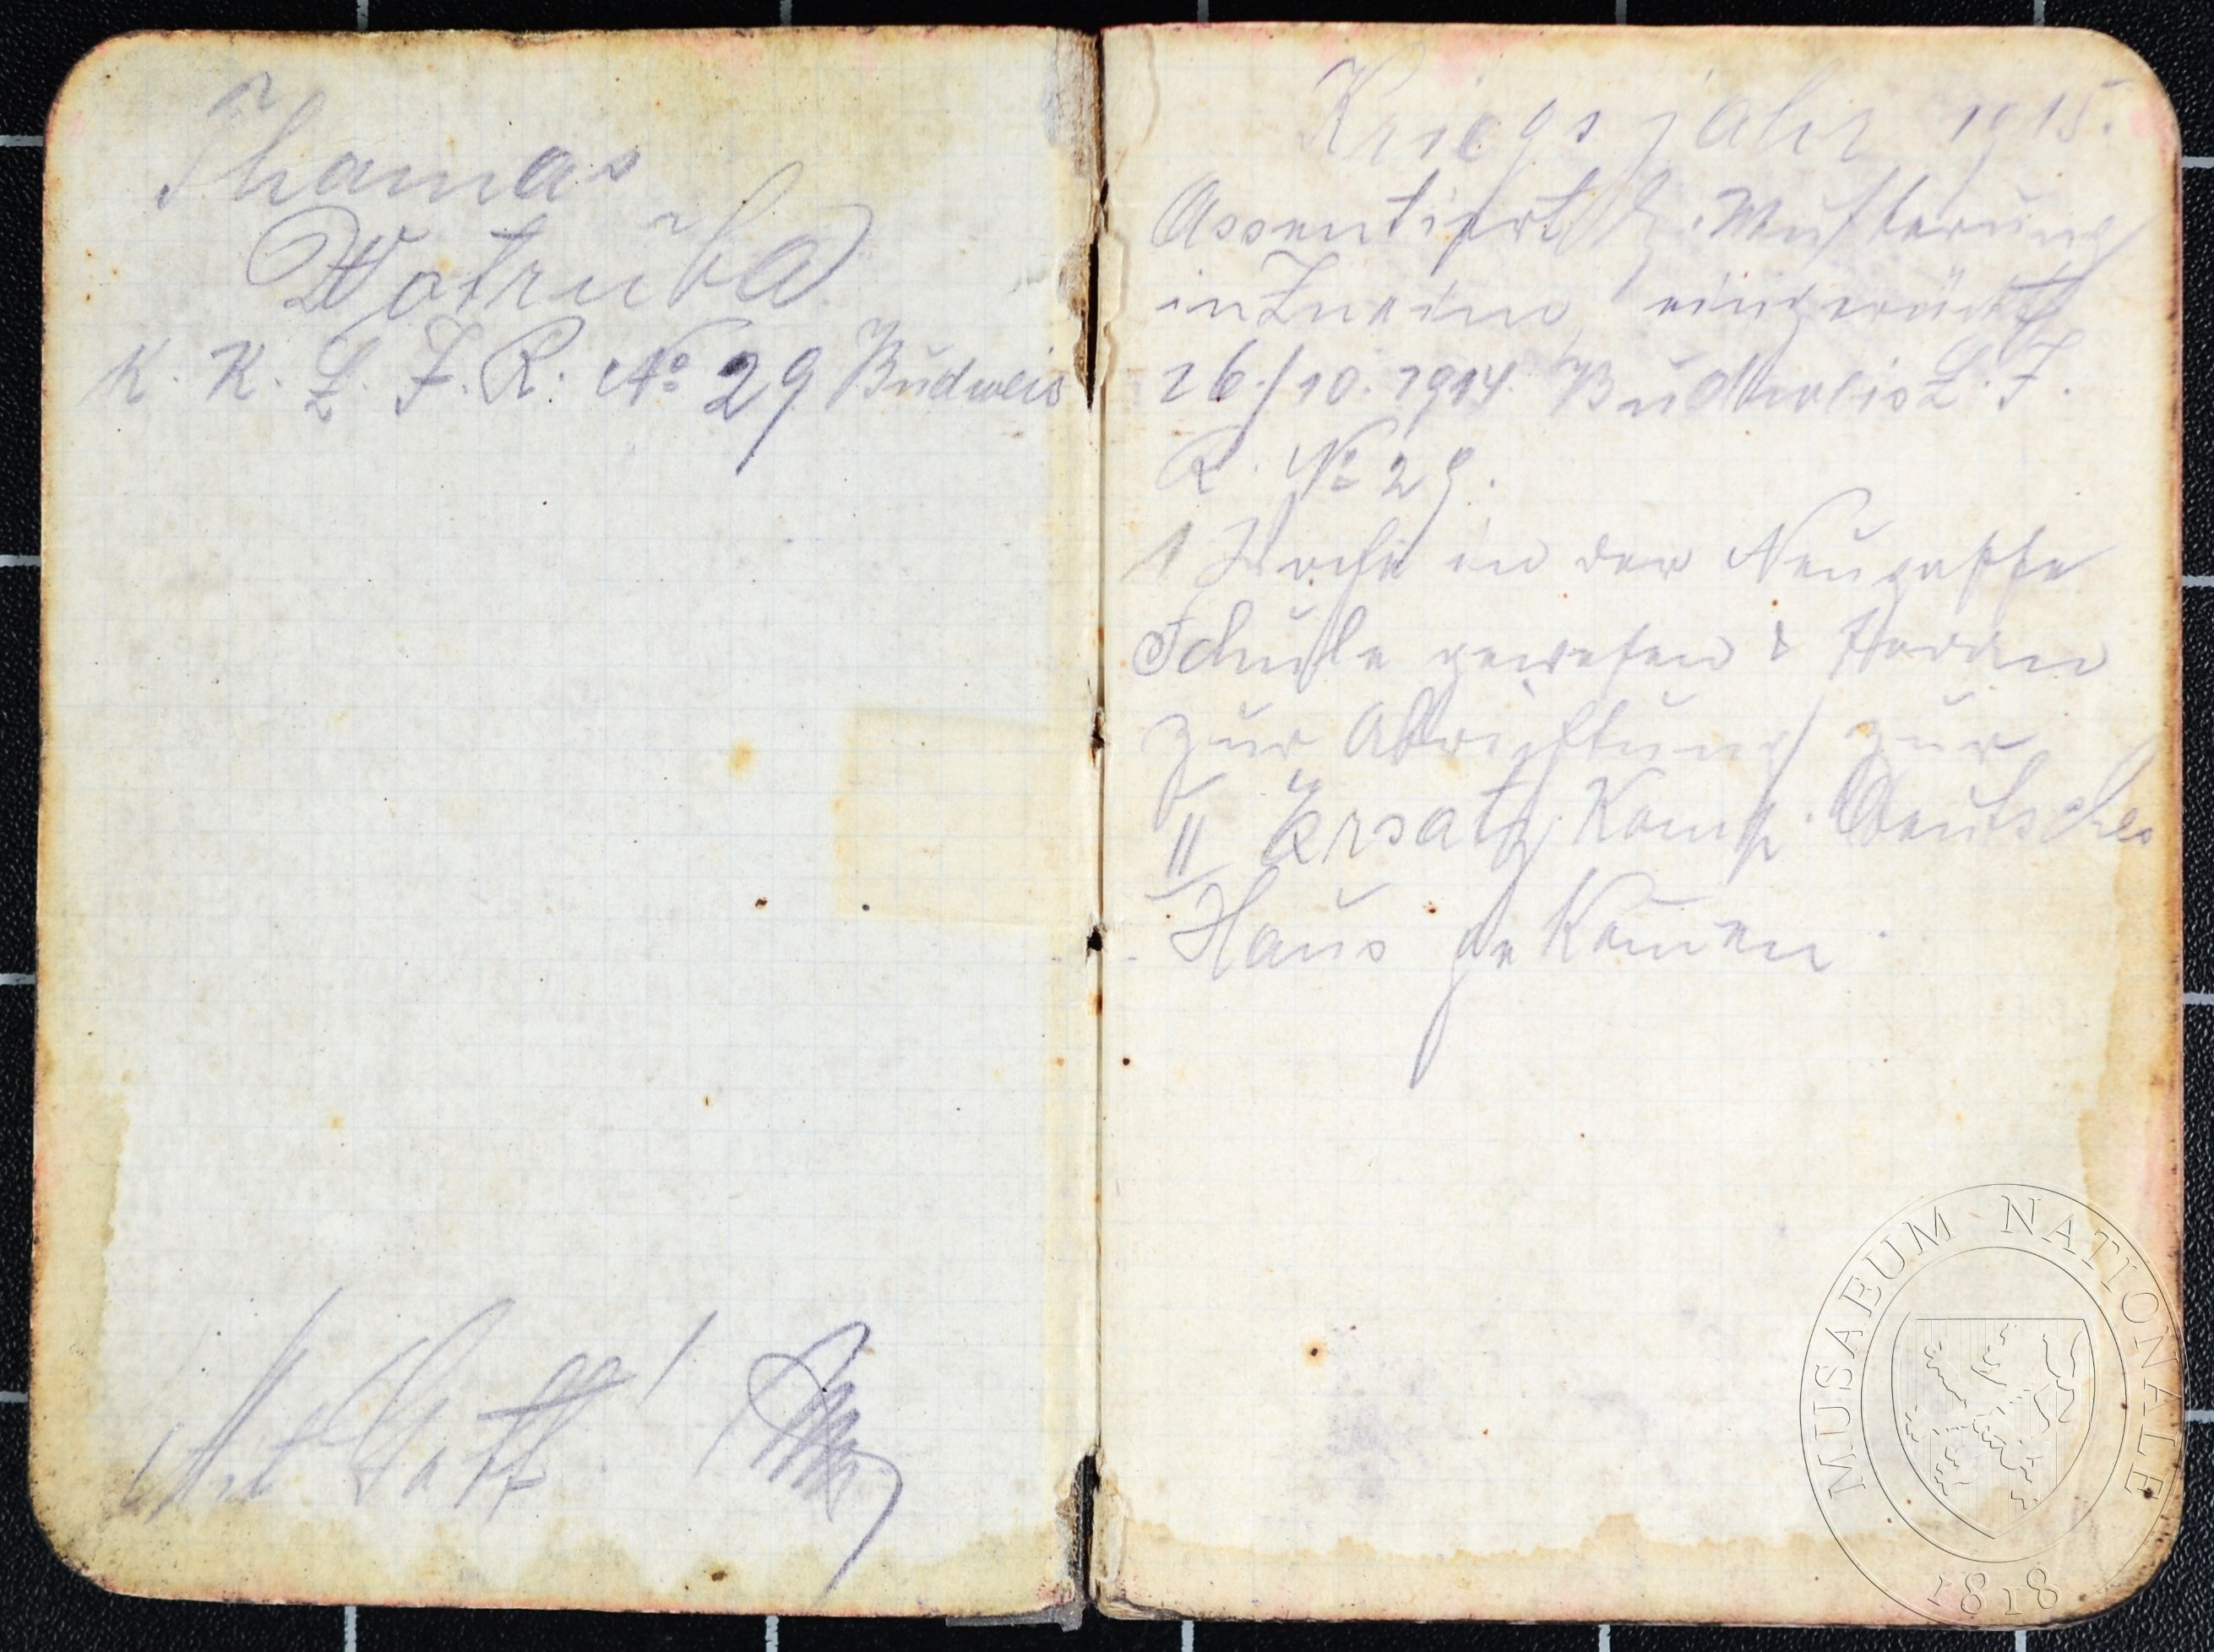 Thomas
Wotruba
K. K. L. I. R. No 29 Budweis
Mit Gott!
Kriegsjahr 1915.
Assentiert Musterung
in Znaim eingerückt
26./10. 1914. Budweis L. I.
R. No 29.
1 Woche in der Neugasse
Schule gewesen & 
zur Abrichtung zur
II Ersatz Komp. Deutsches
Haus gekom̅en.
MUSAEUM NATIONALE
1818